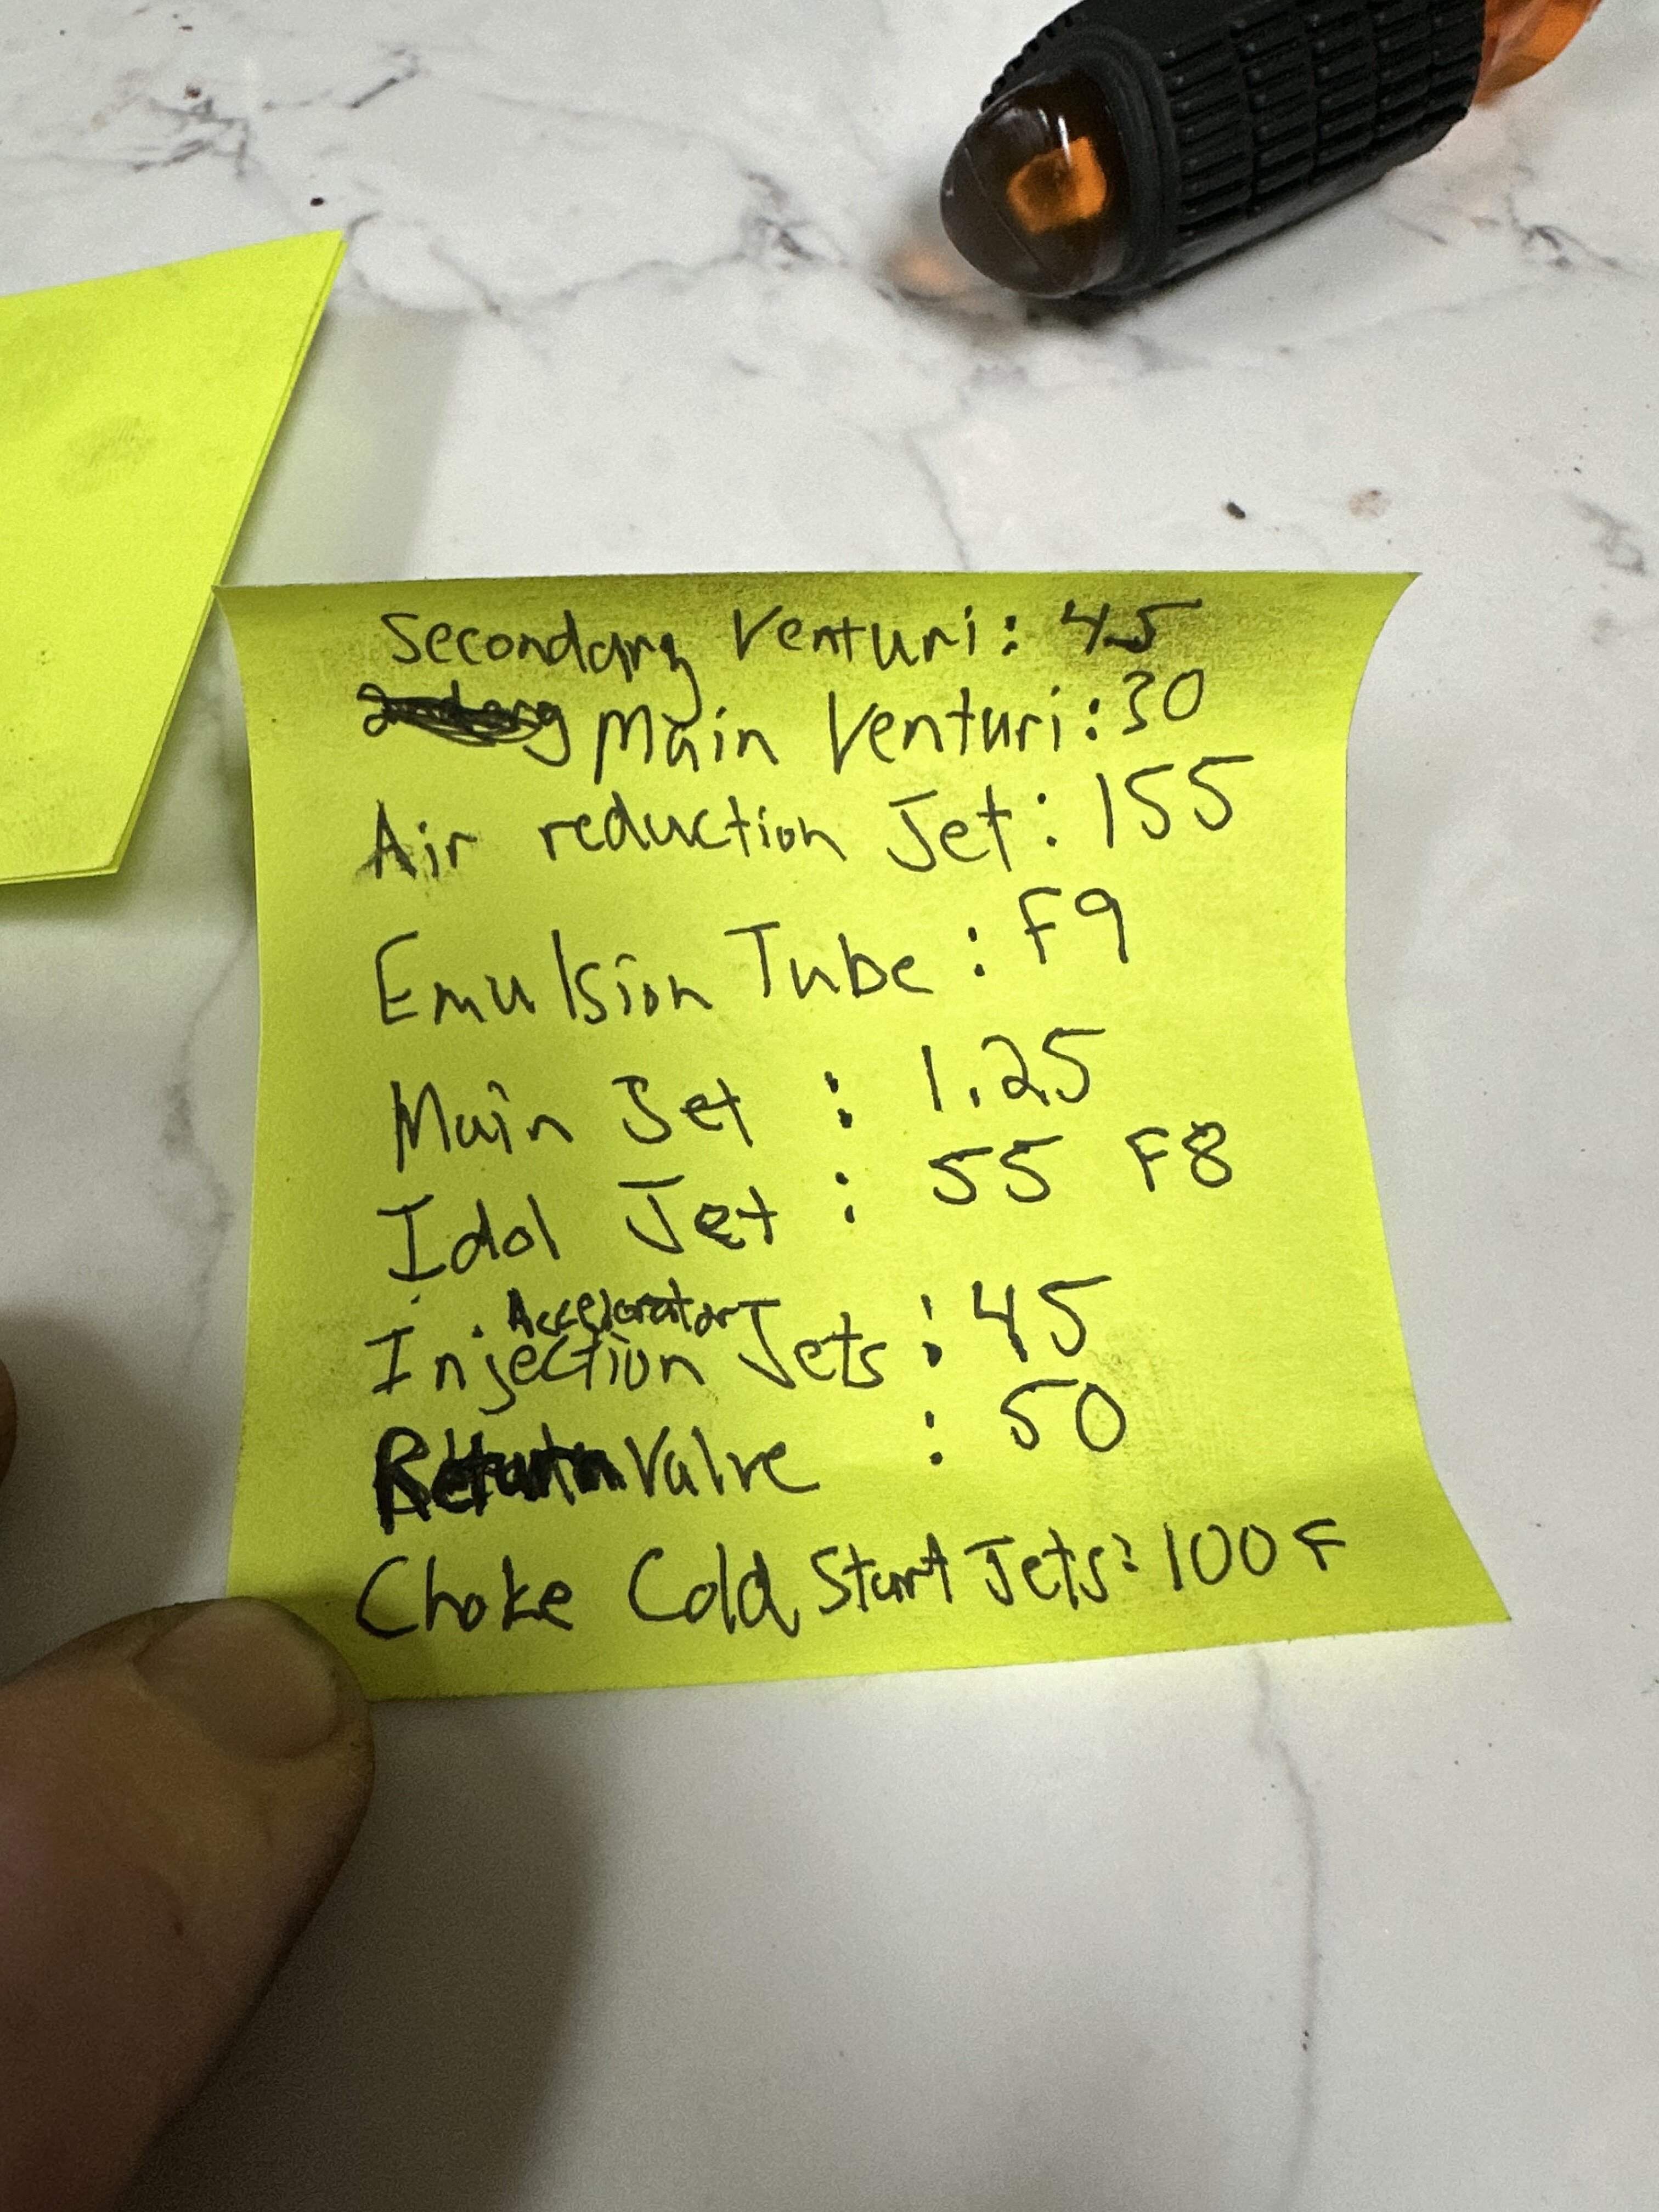 Secondary Venturi: 45
Main Venturi: 30
Air reduction Jet: 155
Emulsion Tube: F9
Main Jet: 1.25
Idol Jet: 55 F8
Accelerator
Injection Jets: 45
Return Valve: 50
Choke Cold Start Jets: 100 F